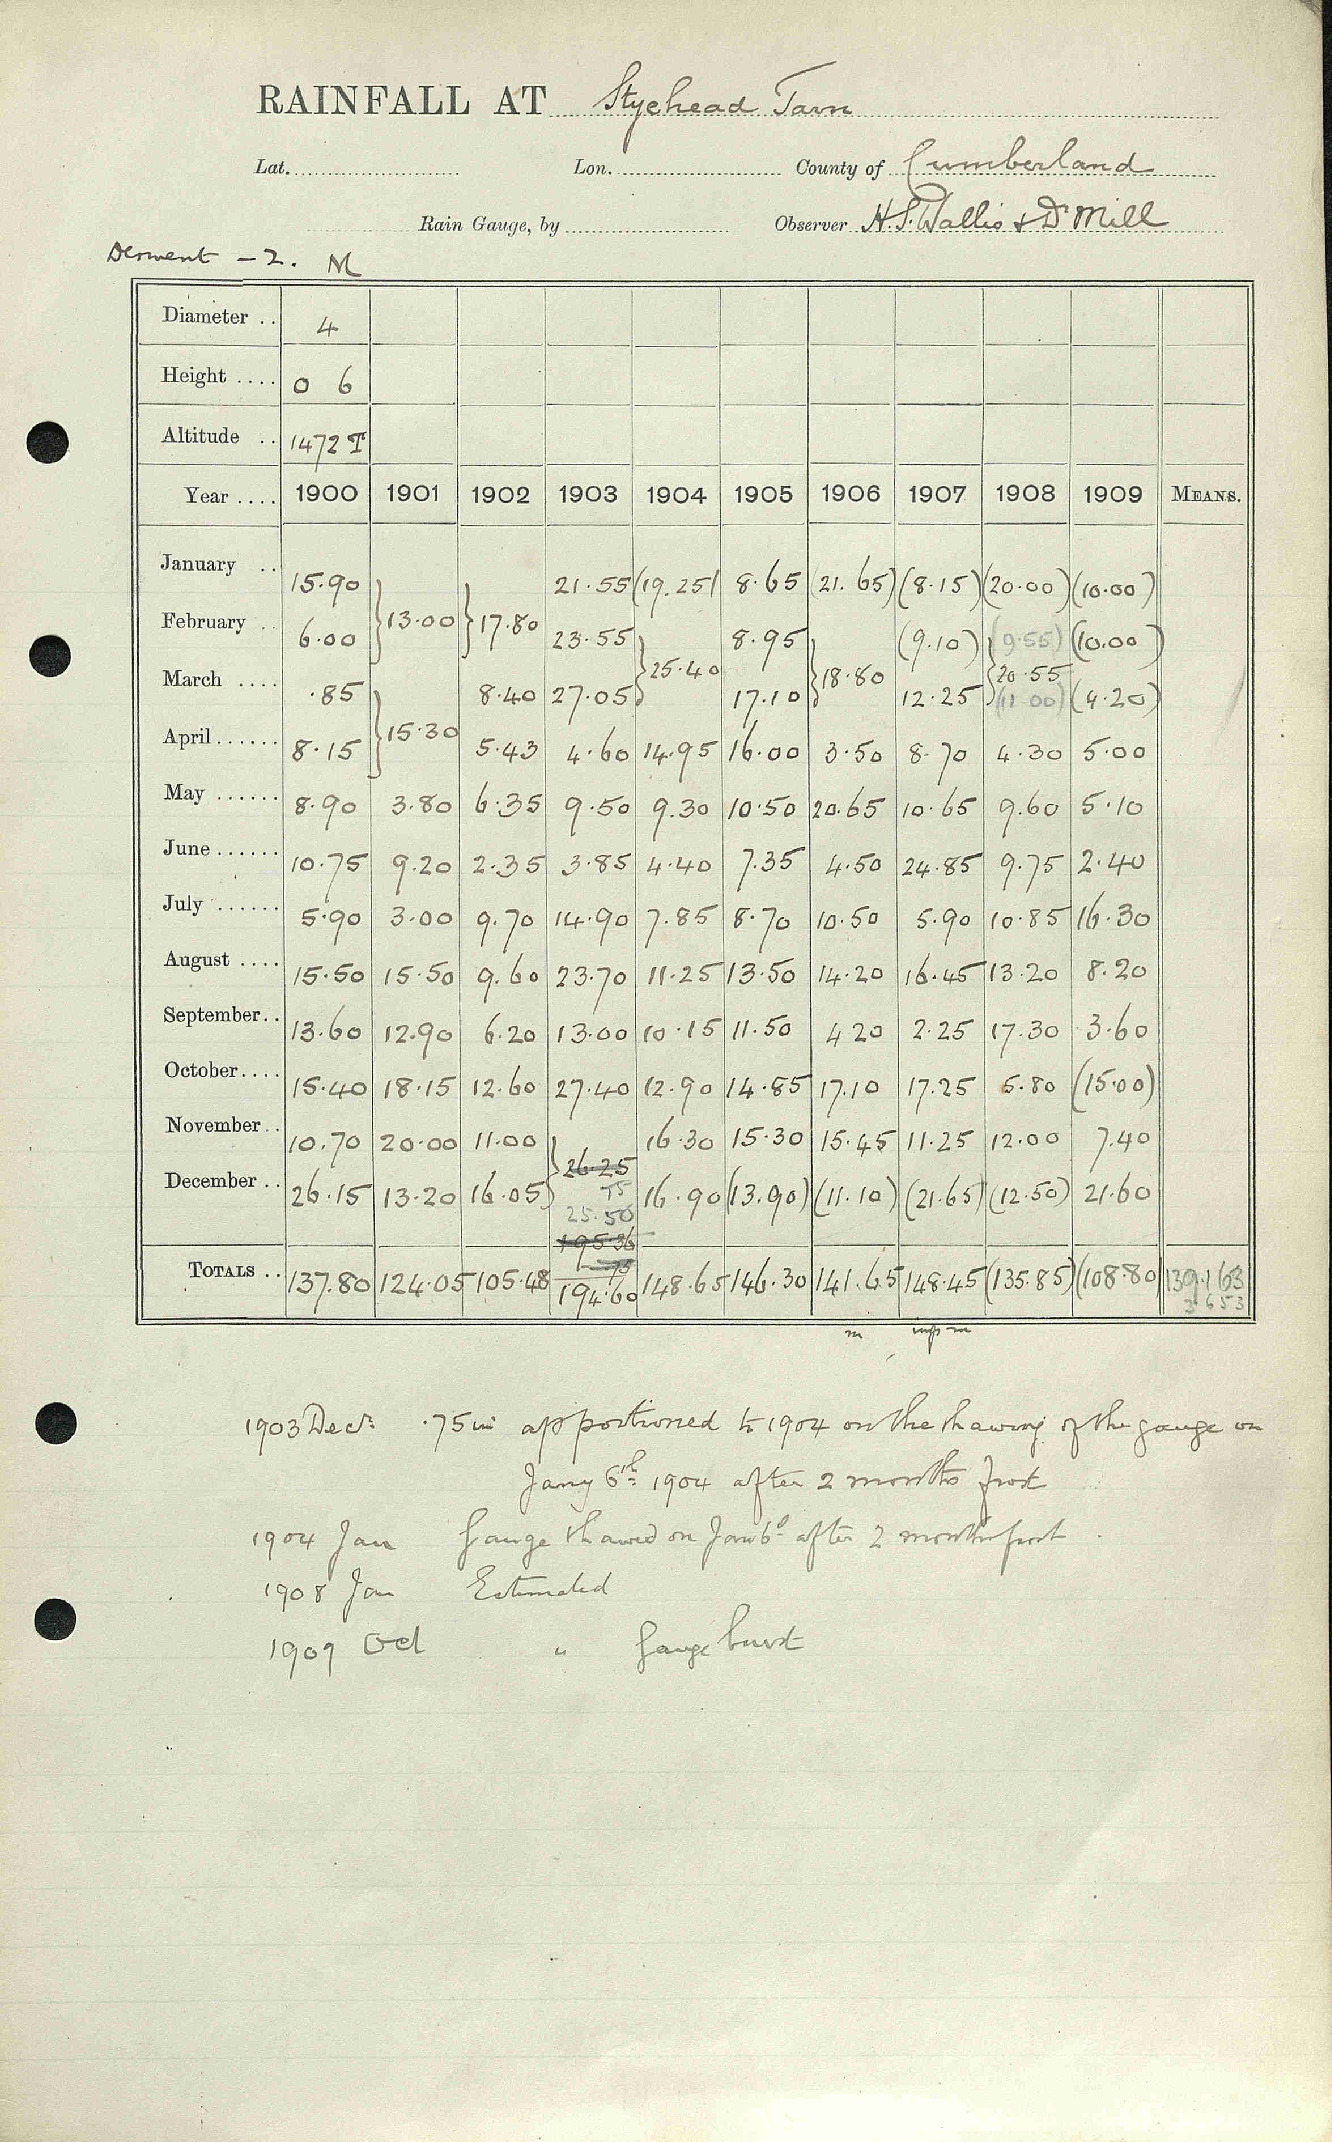 RAINFALL AT Styehead Tarn
Lat. Lon. County of Cumberland
Rain Gauge, by Observer H.S. Wallis & Dr Mill
Derwent - 2. M
Diameter .. 4
Height .... 0 6
Altitude .. 1472 T
Year .... 1900 1901 1902 1903 1904 1905 1906 1907 1908 1909 MEANS.
January .. 15.90 21.55 (19.25) 8.65 (21.65) (8.15) (20.00) (10.00)
} 13.00 } 17.80
February .. 6.00 23.55 8.95 (9.10) (9.55) (10.00)
} 25.40 } 18.80 } 20.55
March .... .85 8.40 27.05 17.10 12.25 (11.00) (4.20)
} 15.30
April...... 8.15 5.43 4.60 14.95 16.00 3.50 8.70 4.30 5.00
May ...... 8.90 3.80 6.35 9.50 9.30 10.50 20.65 10.65 9.60 5.10
June ...... 10.75 9.20 2.35 3.85 4.40 7.35 4.50 24.85 9.75 2.40
July ...... 5.90 3.00 9.70 14.90 7.85 8.70 10.50 5.90 10.85 16.30
August .... 15.50 15.50 9.60 23.70 11.25 13.50 14.20 16.45 13.20 8.20
September.. 13.60 12.90 6.20 13.00 10.15 11.50 4 20 2.25 17.30 3.60
October.... 15.40 18.15 12.60 27.40 12.90 14.85 17.10 17.25 5.80 (15.00)
November.. 10.70 20.00 11.00 16.30 15.30 15.45 11.25 12.00 7.40
} 26.25
December .. 26.15 13.20 16.05 75 16.90 (13.90) (11.10) (21.65) (12.50) 21.60
25.50
195.36
75
TOTALS .. 137.80 124.05 105.48 194.60 148.65 146.30 141.65 148.45 (135.85) (108.80) 139.163
3 653
m m
1903 Decr .75 in apportioned to 1904 on the thawing of the gauge on
Jany 6th 1904 after 2 months frost
1904 Jan Gauge thawed on Jan 6th after 2 months frost
1908 Jan Estimated
1909 Oct " Gauge burst